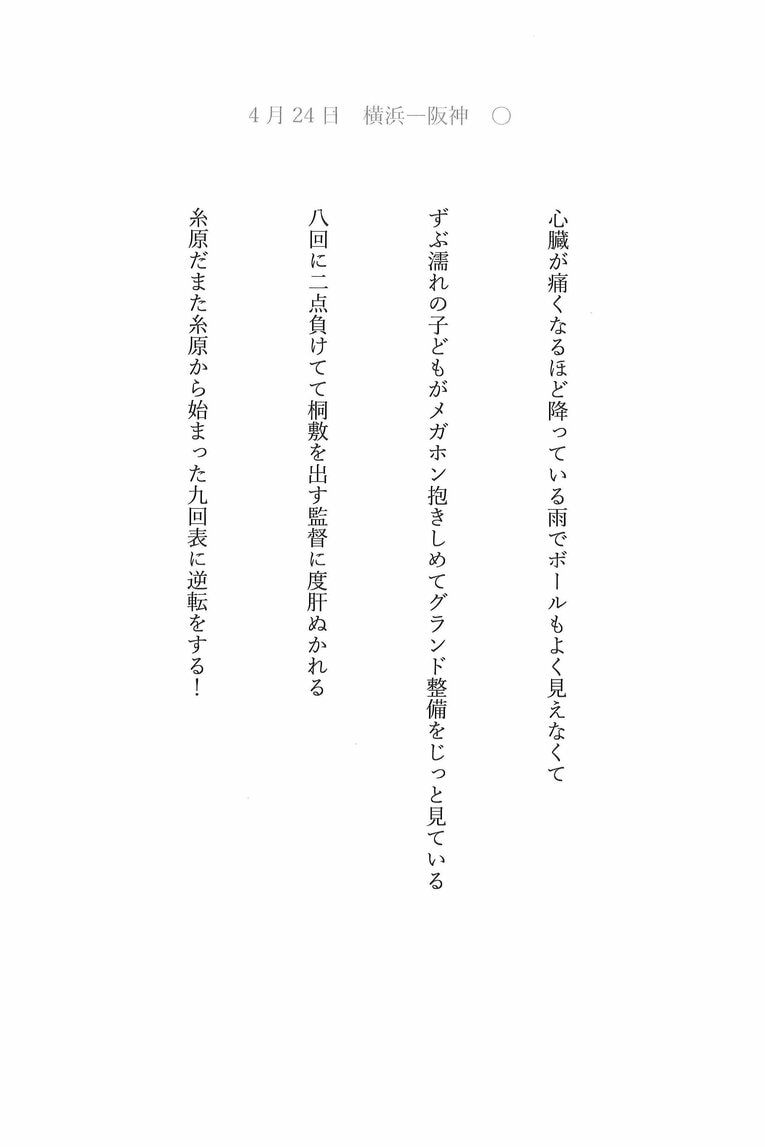 4月24日　横浜―阪神　○
心臓が痛くなるほど降っている雨でボールもよく見えなくて
ずぶ濡れの子どもがメガホン抱きしめてグランド整備をじっと見ている
八回に二点負けてて桐敷を出す監督に度肝ぬかれる
糸原だまた糸原から始まった九回表に逆転をする！